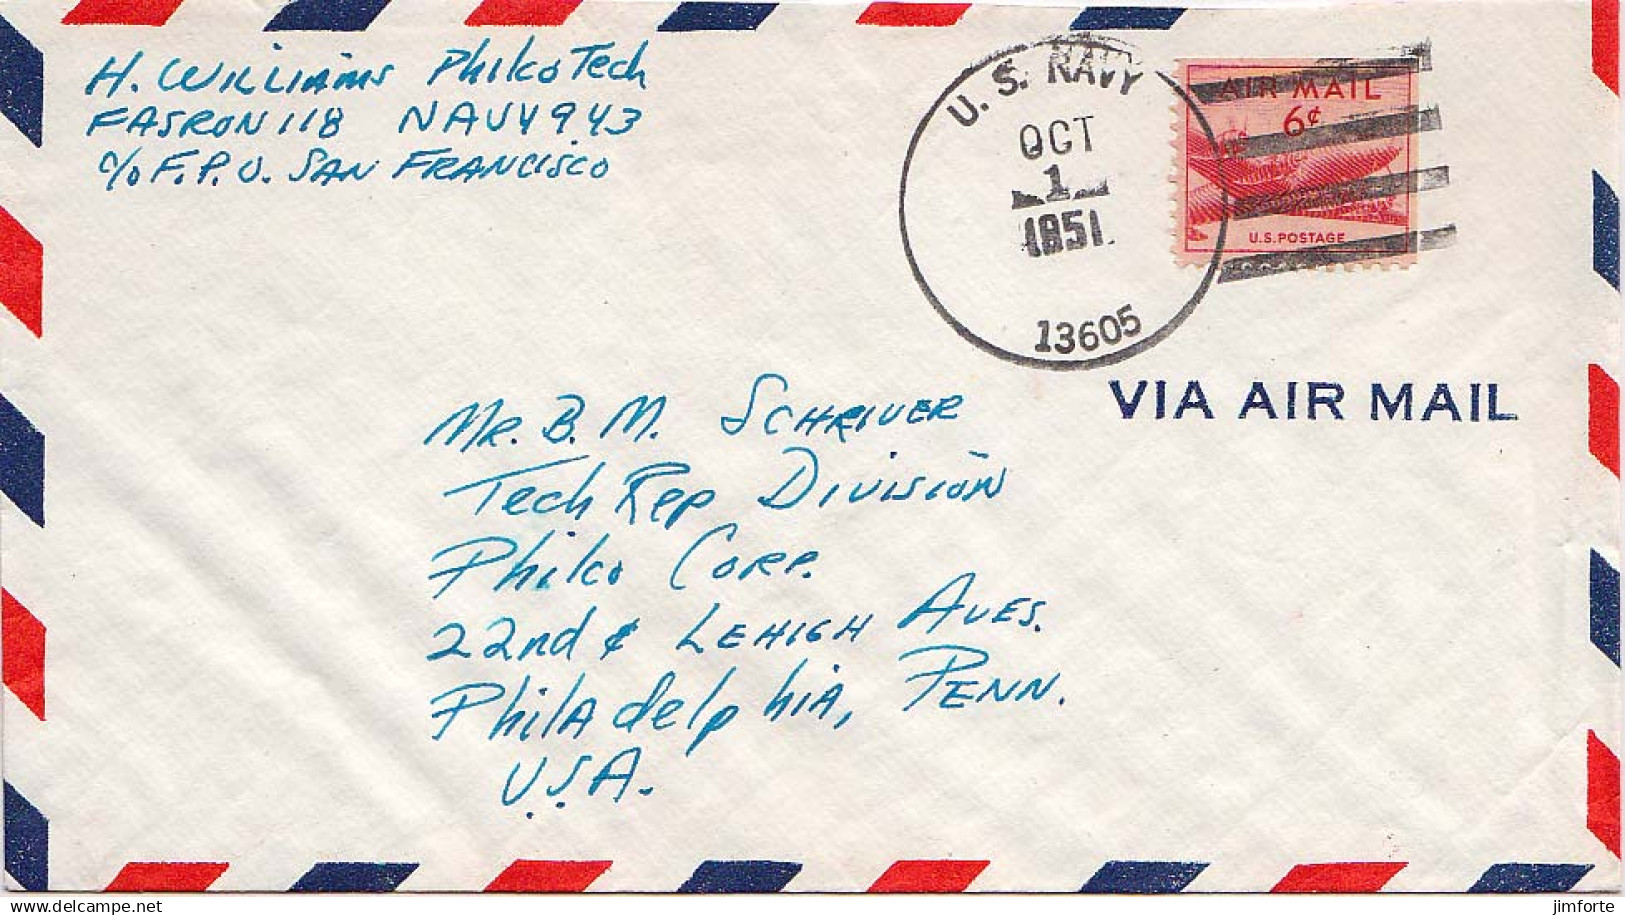 H. WILLIAMS Philco Tech
FASRON 118 NAVY 943
c/o F.P.O. SAN FRANCISCO
U. S. NAVY
OCT
1
1951
13605
AIR MAIL
6¢
U.S. POSTAGE
VIA AIR MAIL
MR. B. M. SCHRIVER
Tech Rep Division
Philco Corp.
22nd & LEHIGH AVES.
Philadelphia, PENN.
U.S.A.
delcampe.net
jimforte